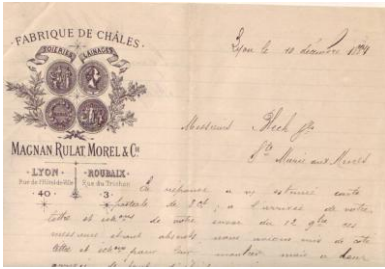 FABRIQUE DE CHÂLES
SOIERIES LAINAGES
MAGNAN RULAT MOREL & Cie
LYON ROUBAIX
Rue de l'Hôtel-de-Ville Rue du Trichon
40 3
Lyon le 10 décembre
Messieurs Blech fres
Ste Marie aux Mines
En réponse a v/ estimée carte
postale de a l'arrivée de votre
lettre et de votre envoi du 12 9bre ces
messieurs étant absents nous avions mis de côté
lettre et pour leur montrer mais a leur